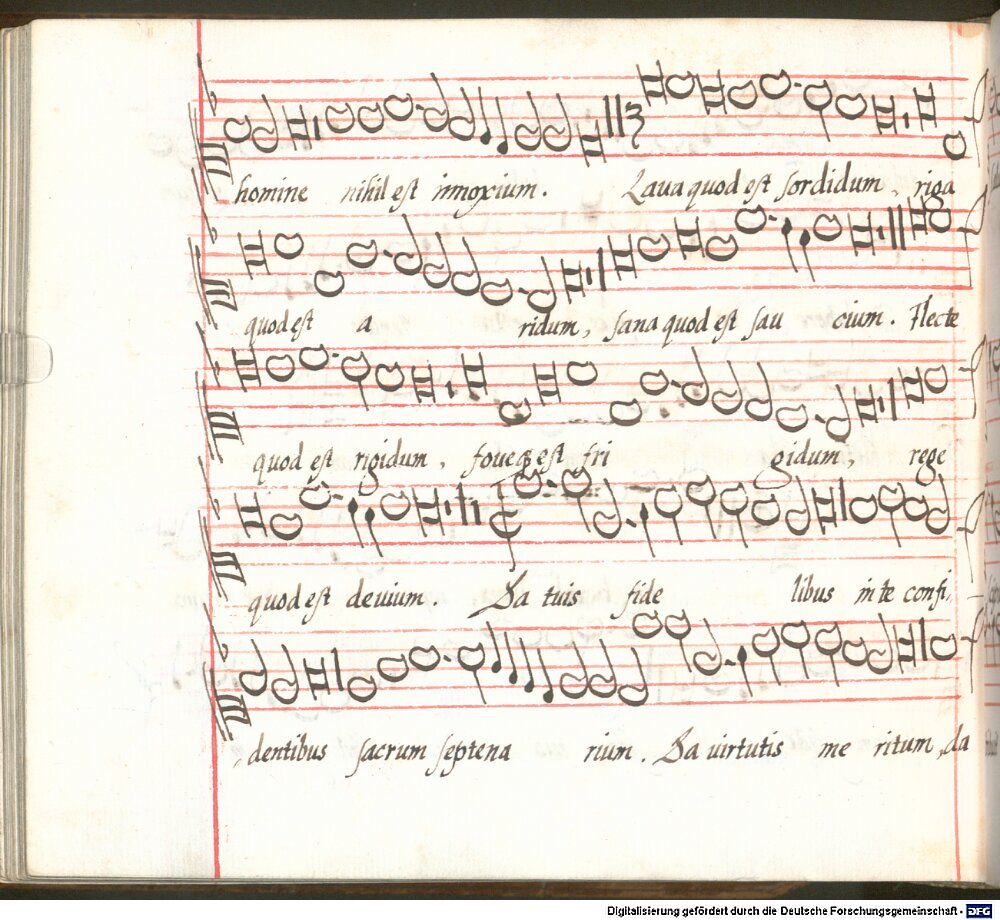 homine nihil est innoxium. Laua quod est sordidum, riga
quod est a ridum, sana quod est sau cium. Flecte
quod est rigidum, foue qȝ est fri gidum, rege
quod est deuium. Da tuis fide libus in te confi,
dentibus sacrum septena rium. Da uirtutis me ritum, da
Digitalisierung gefördert durch die Deutsche Forschungsgemeinschaft - DFG